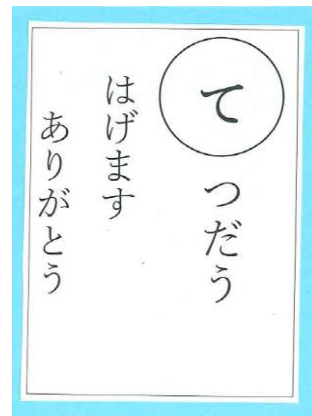 てつだう
はげます
ありがとう